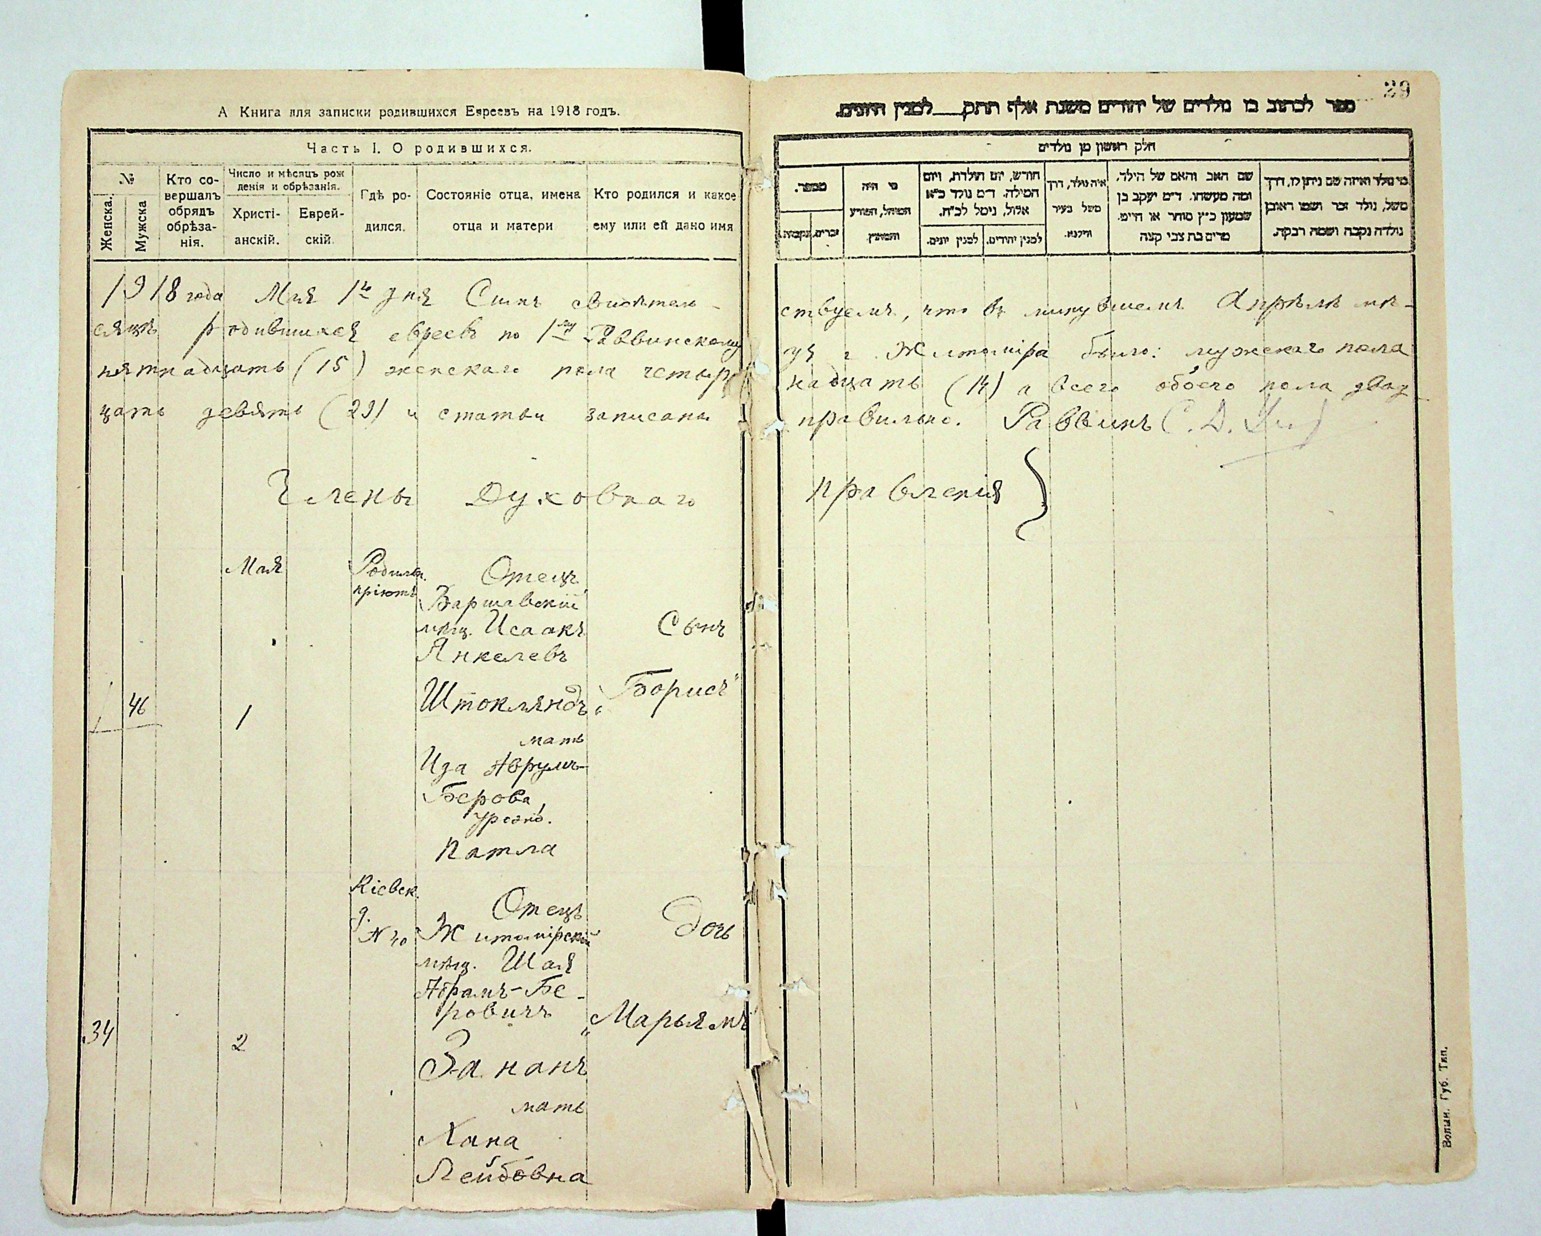 А Книга для записки родившихся Евреевъ на 1918 годъ.
Часть I. О родившихся.
№
Женска.
Мужска
Кто со-
вершалъ
обрядъ
обрѣза-
нія.
Число и мѣсяцъ рож
денія и обрѣзанія.
Христі-
анскій.
Еврей-
скій.
Гдѣ ро-
дился.
Состояніе отца, имена
отца и матери
Кто родился и какое
ему или ей дано имя
1918 года Мая 1го дня Симъ свидѣтель-
сяцѣ родившихся евреевъ по 1му Раввинскому
пятнадцать (15) женскаго пола четыр
цать девять (29) и статьи записаны
Члены Духовнаго
Мая
Родильн.
пріютъ
Отецъ
Варшавскій
мѣщ. Исаакъ
Янкелевъ
Штоклянд
Сынъ
„Борисъ"
46
1
мать
Ида Аврумъ-
Берова,
урожд.
Патла
Кіевск.
Отецъ
Житомірскій
мѣщ. Шая
Абрамъ-Бе-
ровичъ
Дочь
„Марьямъ"
34
2
мать
Хана
Лейбовна
29
ספר לכתוב בו נולדים של יהודים משנת אלף תתק___למנין היונים.
חלק ראשון מן נולדים
מי נולד ואיזה שם ניתן לו, דרך
משל, נולד זכר ושמו ראובן
נולדה נקבה ושמה רבקה.
שם האב והאם של הילד,
ומה מעשהו. ד״מ יעקב בן
שמעון כ״ץ סוחר או חייט.
מרים בת צבי קצה
איה נולד, דרך
משל בעיר
ווילנא.
חודש, יום הולדת, ויום
המילה. ד״מ נולד כ״א
אלול, נימל לכ״ח.
למנין יהודים.
למנין יונים.
מי היה
המוהל, הפורע
והמוצץ.
מספר.
זכרים.
נקבות.
ствуемъ, что въ минувшемъ Апрѣлѣ мѣ-
уч г. Житоміра было: мужскаго пола
надцать (14) а всего обоего пола двад
правильно. Раввинъ С. Д.
правленія
Волын. Губ. Тип.